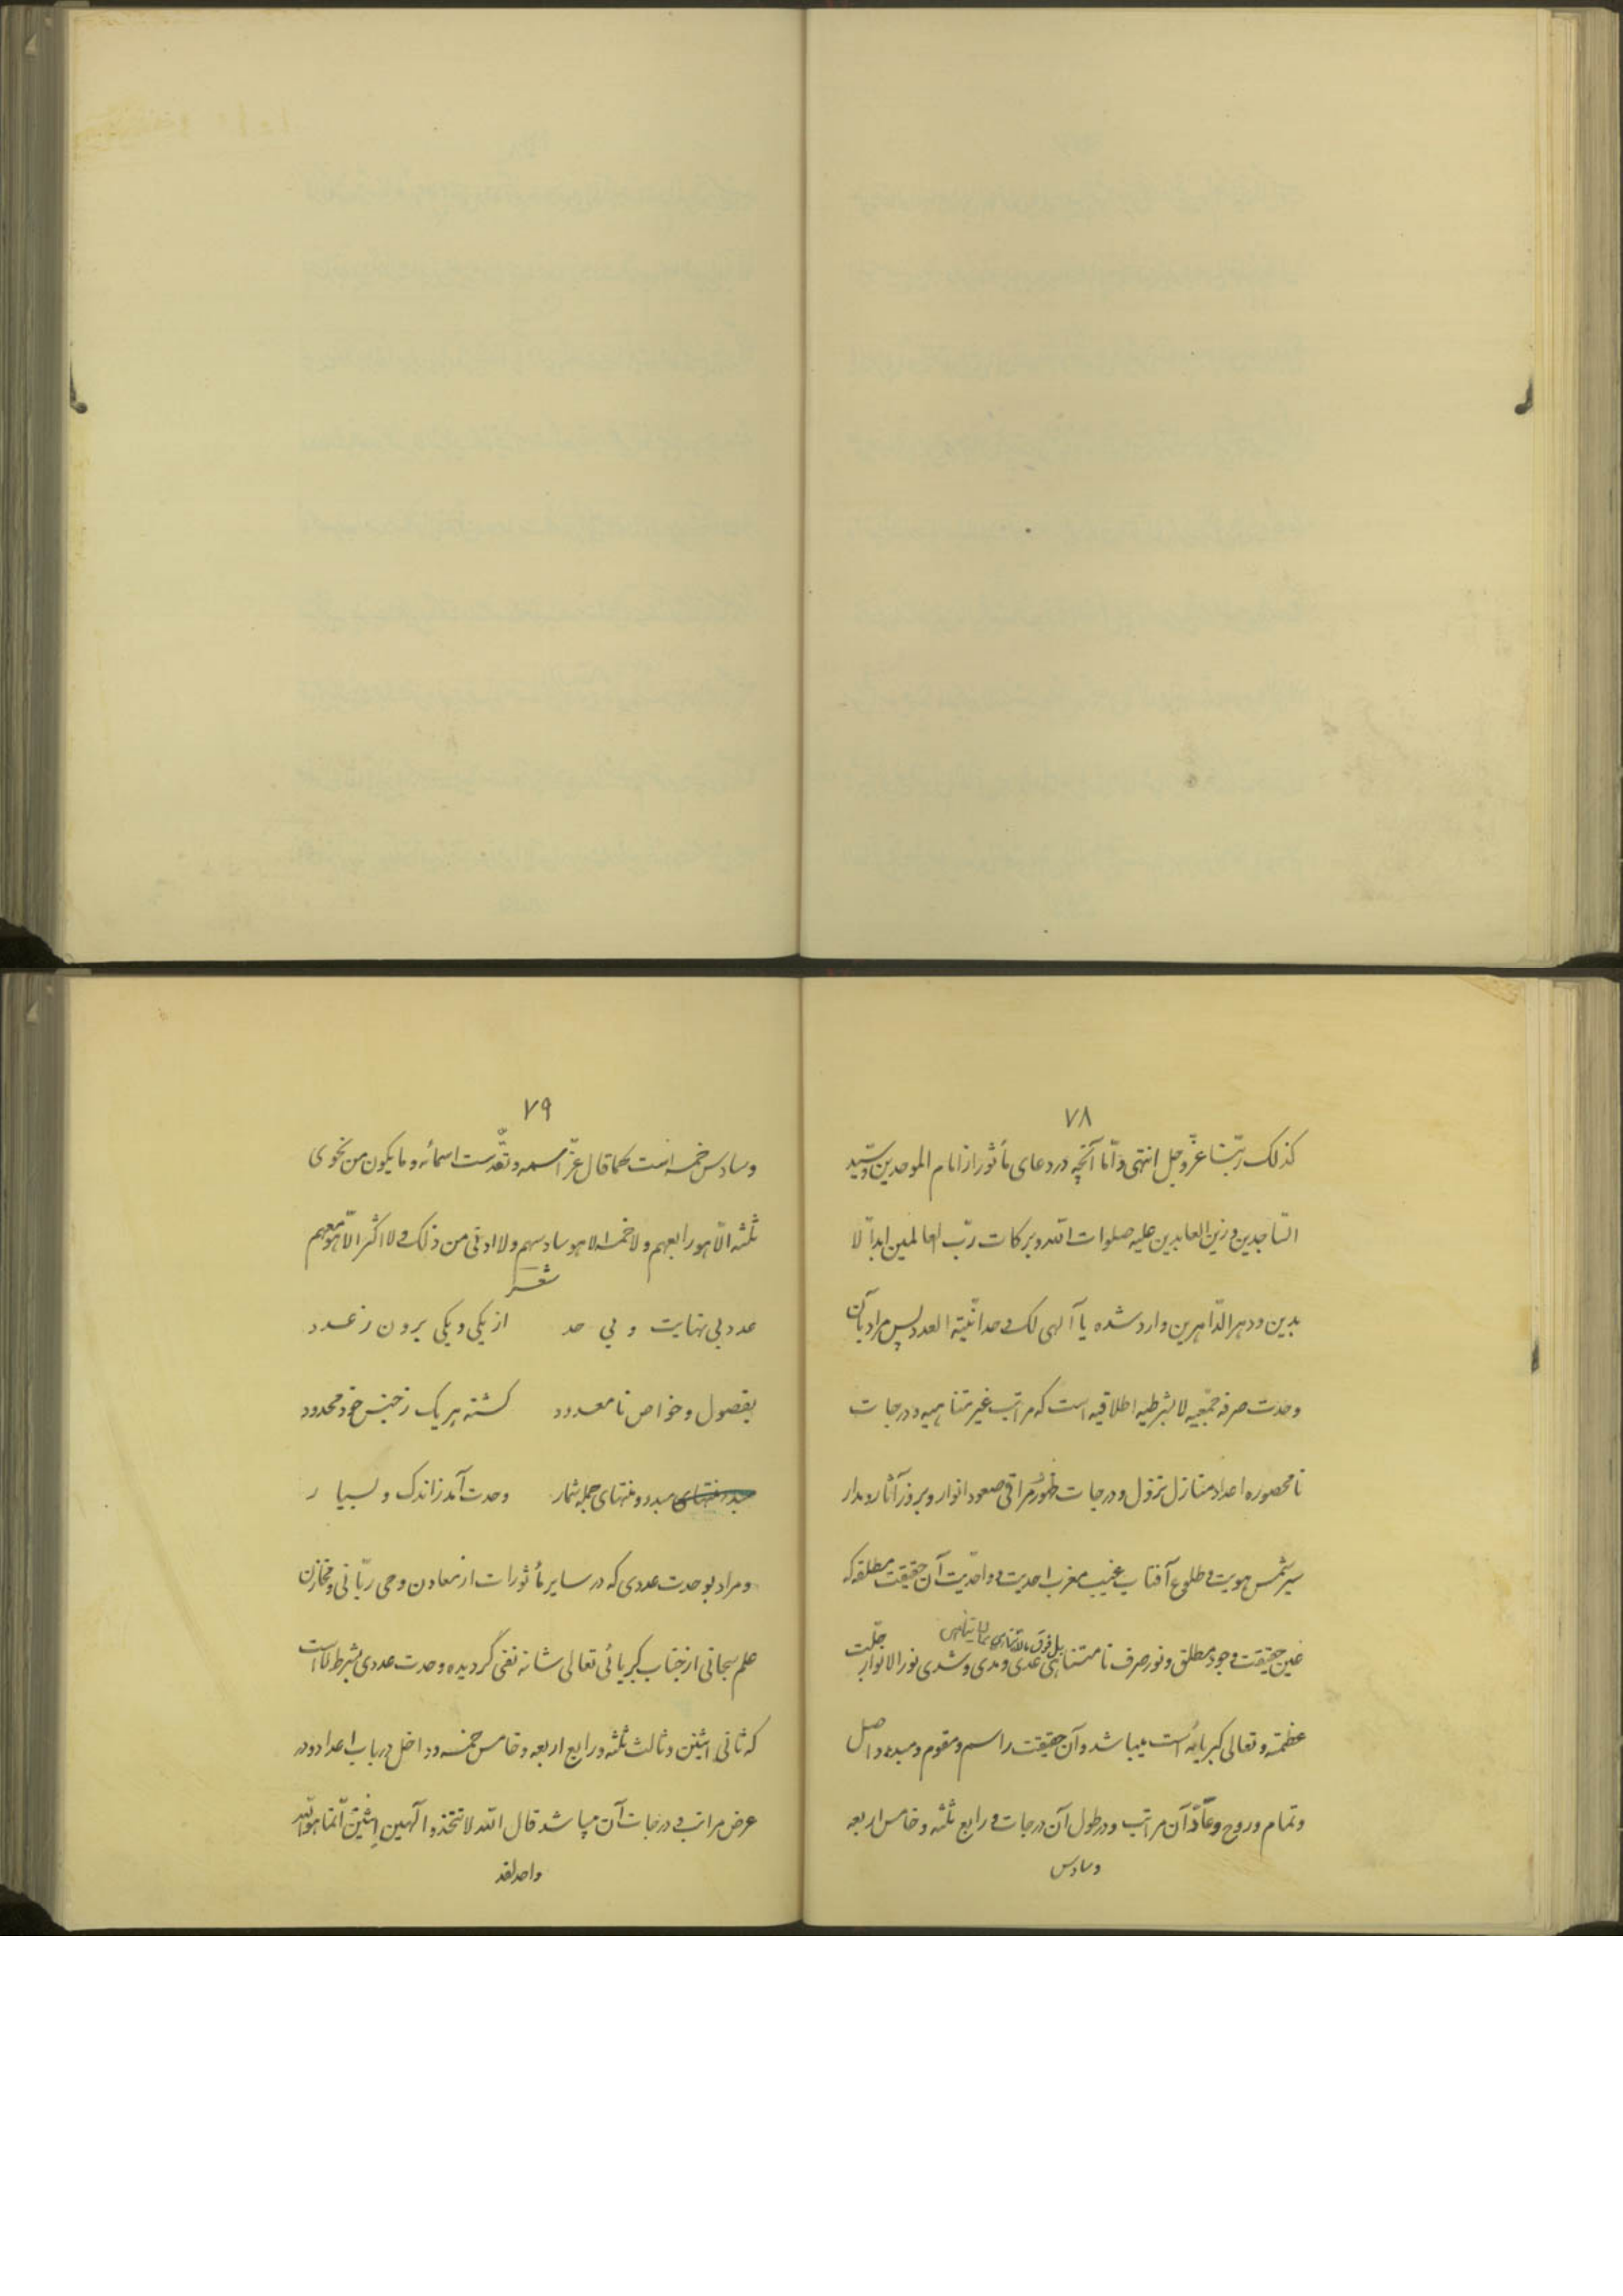 ۷۸
كذلك ربّنا عزّ وجل انتهى و امّا آنچه در دعای مأثور از امام الموحدین و سیّد
السّاجدین و زین العابدین علیه صلوات الله و برکات ربّ العالمین ابد الا
بدین و دهر الدّاهرین وارد شده یا آلهی لک وحدانیّة العدد پس مراد بآن
وحدت صرفه جمعیه لا بشرطیه اطلاقیه است که مراتب غیر متناهیه و درجات
نامحصوره اعداد منازل نزول و درجات ظهور و مراقی صعود انوار و بروز آثار و مدار
سیر شمس هویت و طلوع آفتاب غیب مغرب احدیت و واحدیت آن حقیقت مطلقه که
عین حقیقت وجود مطلق و نور صرف نامتناهی عدی و مدی و شدی نور الانوار جلّت
بل فوق مالایتناهی بمالایتناهی
عظمته و تعالی کبریائه است میباشد و آن حقیقت راسم و مقوم و مبدء و اصل
و تمام و روح و عادّ آن مراتب و در طول آن درجات و رابع ثلثه و خامس اربعه
و سادس
۷۹
و سادس خمسه است کما قال عزّ اسمه و تقدّست اسمائه و ما یکون من نجوی
ثلثه الّا هو رابعهم و لا خمسه الا هو سادسهم و لا ادنی من ذلک و لا اکثر الّا هو معهم
شعر
عدد بی نهایت و بی حد از یکی و یکی برون ز عدد
بفصول و خواص نامعدود گشته هر یک ز جنس خود محدود
مبدء و منتهای جمله شمار وحدت آمد ز اندک و بسیار
و مراد بوحدت عددی که در سایر مأثورات از معادن وحی ربّانی و مخازن
علم سبحانی از جناب کبریائی تعالی شانه نفی گردیده وحدت عددی بشرط لا است
که ثانی اثنین و ثالث ثلثه و رابع اربعه و خامس خمسه و داخل در باب اعداد و در
عرض مراتب و درجات آن میباشد قال الله لا تتخذوا آلهین اثنین انّما هو آله
واحد لقد